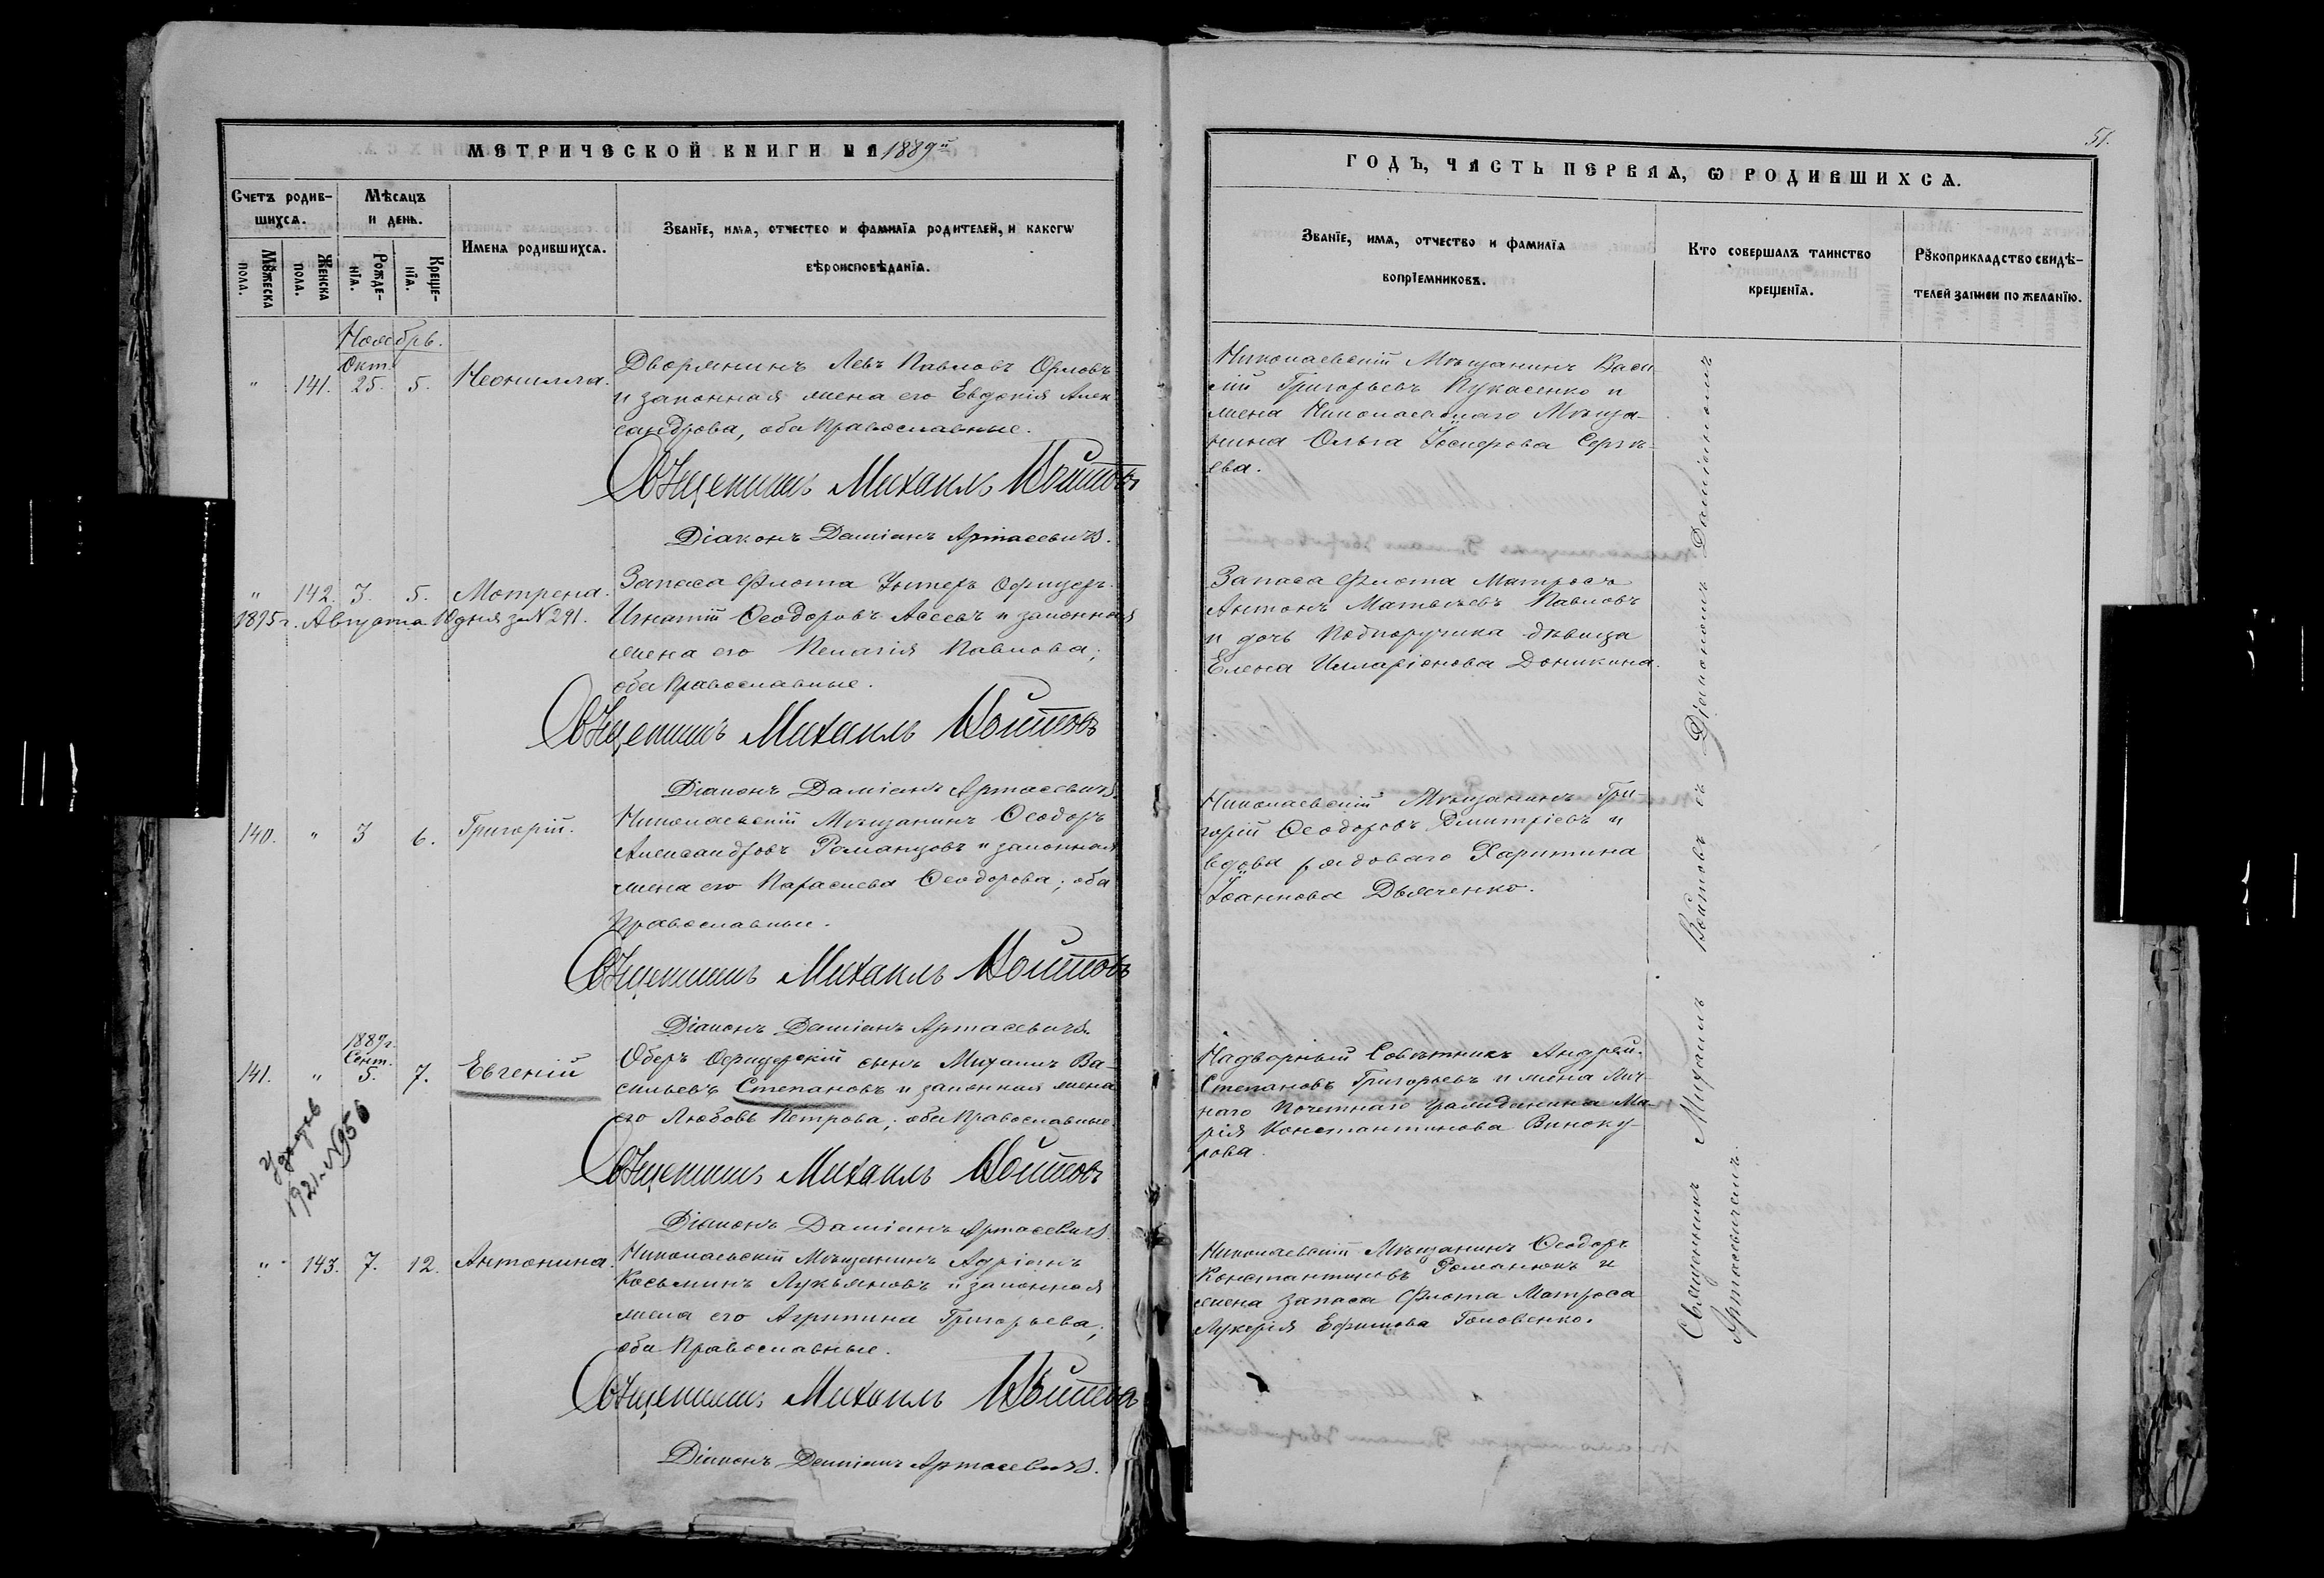 МЕТРИЧЕСКОЙ КНИГИ НА 1889й
Счетъ родив-
шихся.
Мѣсяцъ
и день.
Имена родившихся.
Званїе, имя, отчество и фамилїя родителей, и какогѡ
вѣроисповѣданїя.
Мꙋжеска
пола.
Женска
пола.
Рожде-
нїя.
Креще-
нїя.
Ноябрь.
" 141. Окт. 25. 5. Неонилла.
Дворянинъ Левъ Павловъ Орловъ
и законная жена его Евдокія Алек
сандрова, оба Православные.
Священникъ Михаилъ Войтовъ
Діаконъ Даміанъ Артасевичъ.
" 142. 3. 5. Мотрена.
1895 г. Августа 10 дня за № 291.
Запаса Флота Унтеръ Офицеръ
Игнатій Ѳеодоровъ Асеевъ и законная
жена его Пелагія Павлова;
оба Православные.
Священникъ Михаилъ Войтовъ
Діаконъ Даміанъ Артасевичъ.
140. " 3 6. Григорій.
Николаевскій Мѣщанинъ Ѳеодоръ
Александровъ Романцовъ и законная
жена его Параскева Ѳеодорова; оба
Православные.
Священникъ Михаилъ Войтовъ
Діаконъ Даміанъ Артасевичъ.
141. " 1889 г. Сент. 5. 7. Евгеній
Оберъ Офицерскій сынъ Михаилъ Ва-
сильевъ Степановъ и законная жена
его Любовь Петрова; оба Православные
1921. № 956
Священникъ Михаилъ Войтовъ
Діаконъ Даміанъ Артасевичъ.
" 143. 7. 12. Антонина.
Николаевскій Мѣщанинъ Адріанъ
Косьминъ Лукьяновъ и законная
жена его Агрипина Григорьева;
оба Православные.
Священникъ Михаилъ Войтовъ
Діаконъ Даміанъ Артасевичъ.
51.
ГОДЪ, ЧАСТЬ ПЕРВАЯ, Ѡ РОДИВШИХСЯ.
Званїе, имя, отчество и фамилїя
воспрїемниковъ.
Кто совершалъ таинство
крещенїя.
Рꙋкоприкладство свидѣ-
телей записи по желанїю.
Николаевскій Мѣщанинъ Васи
лій Григорьевъ Лукасенко и
жена Николаевскаго Мѣща-
нина Ольга Іосифова Сергѣ-
ева.
Запаса Флота Матросъ
Антонъ Матвѣевъ Павловъ
и дочь Подпоручика дѣвица
Елена Илларіонова Доникина.
Николаевскій Мѣщанинъ Гри-
горій Ѳеодоровъ Дмитріевъ и
вдова рядоваго Харитина
Іоаннова Дьяченко.
Надворный Совѣтникъ Андрей
Степановъ Григорьевъ и жена Лич-
наго Почетнаго гражданина Ма-
рія Константинова Виноку-
рова.
Николаевскій Мѣщанинъ Ѳеодоръ
Константиновъ Романюкъ и
жена запаса Флота Матроса
Лукерія Ефимова Головенко.
Священникъ Михаилъ Войтовъ съ Діакономъ Даміаномъ
Артасевичемъ.